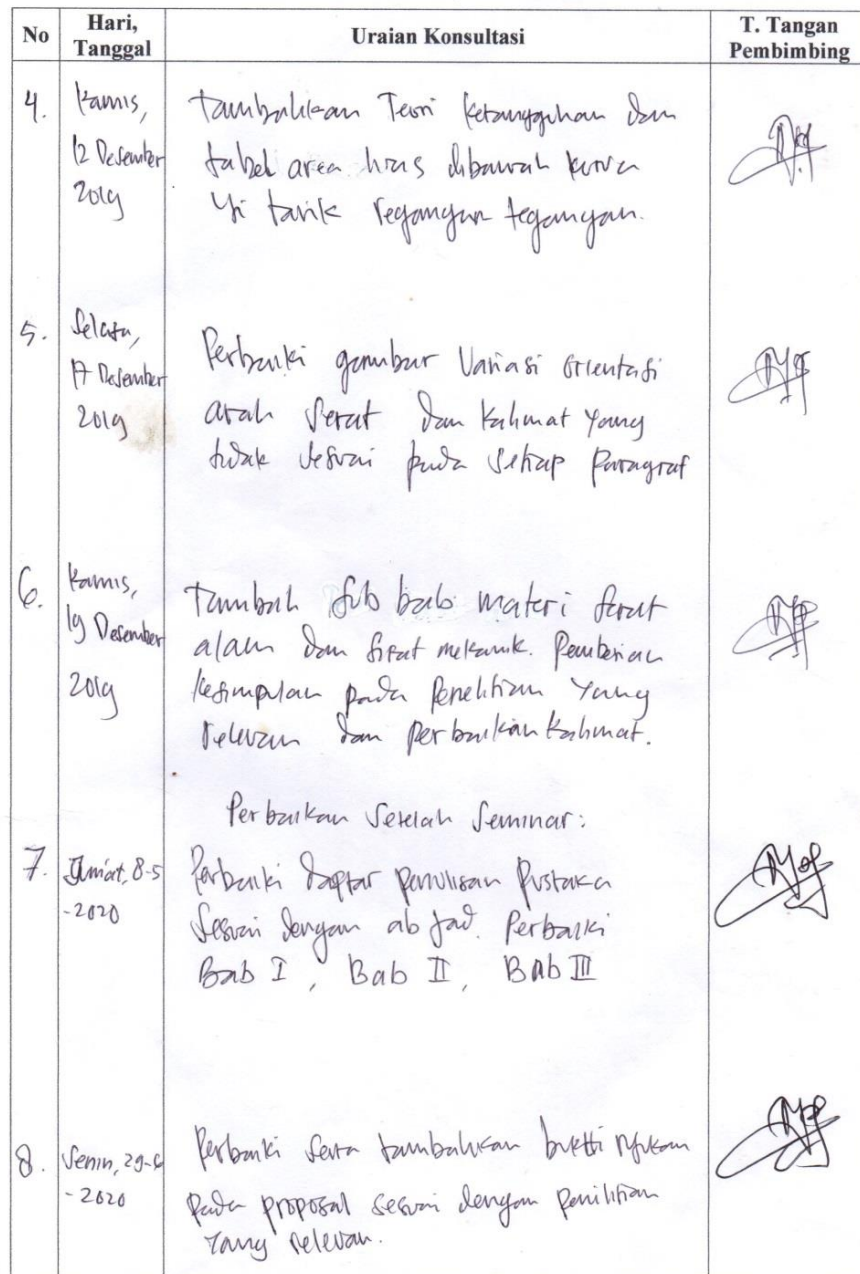 No Hari, Tanggal Uraian Konsultasi T. Tangan Pembimbing
4. Kamis, 12 Desember 2019
Tambahkan Teori Ketangguhan dan
tabel area luas dibawah kurva
uji tarik regangan tegangan.
5. Selasa, 17 Desember 2019
Perbaiki gambar Variasi orientasi
arah Serat dan Kalimat yang
tidak sesuai pada setiap Paragraf
6. Kamis, 19 Desember 2019
Tambah sub bab materi serat
alam dan sifat mekanik. Pemberian
kesimpulan pada Penelitian Yang
relevan dan perbaikan kalimat.
Perbaikan Setelah Seminar:
7. Jum'at, 8-5-2020
Perbaiki daftar penulisan Pustaka
Sesuai dengan abjad. Perbaiki
Bab I, Bab II, Bab III
8. Senin, 29-6-2020
Perbaiki serta tambahkan bukti
pada proposal sesuai dengan penilitian
Yang relevan.